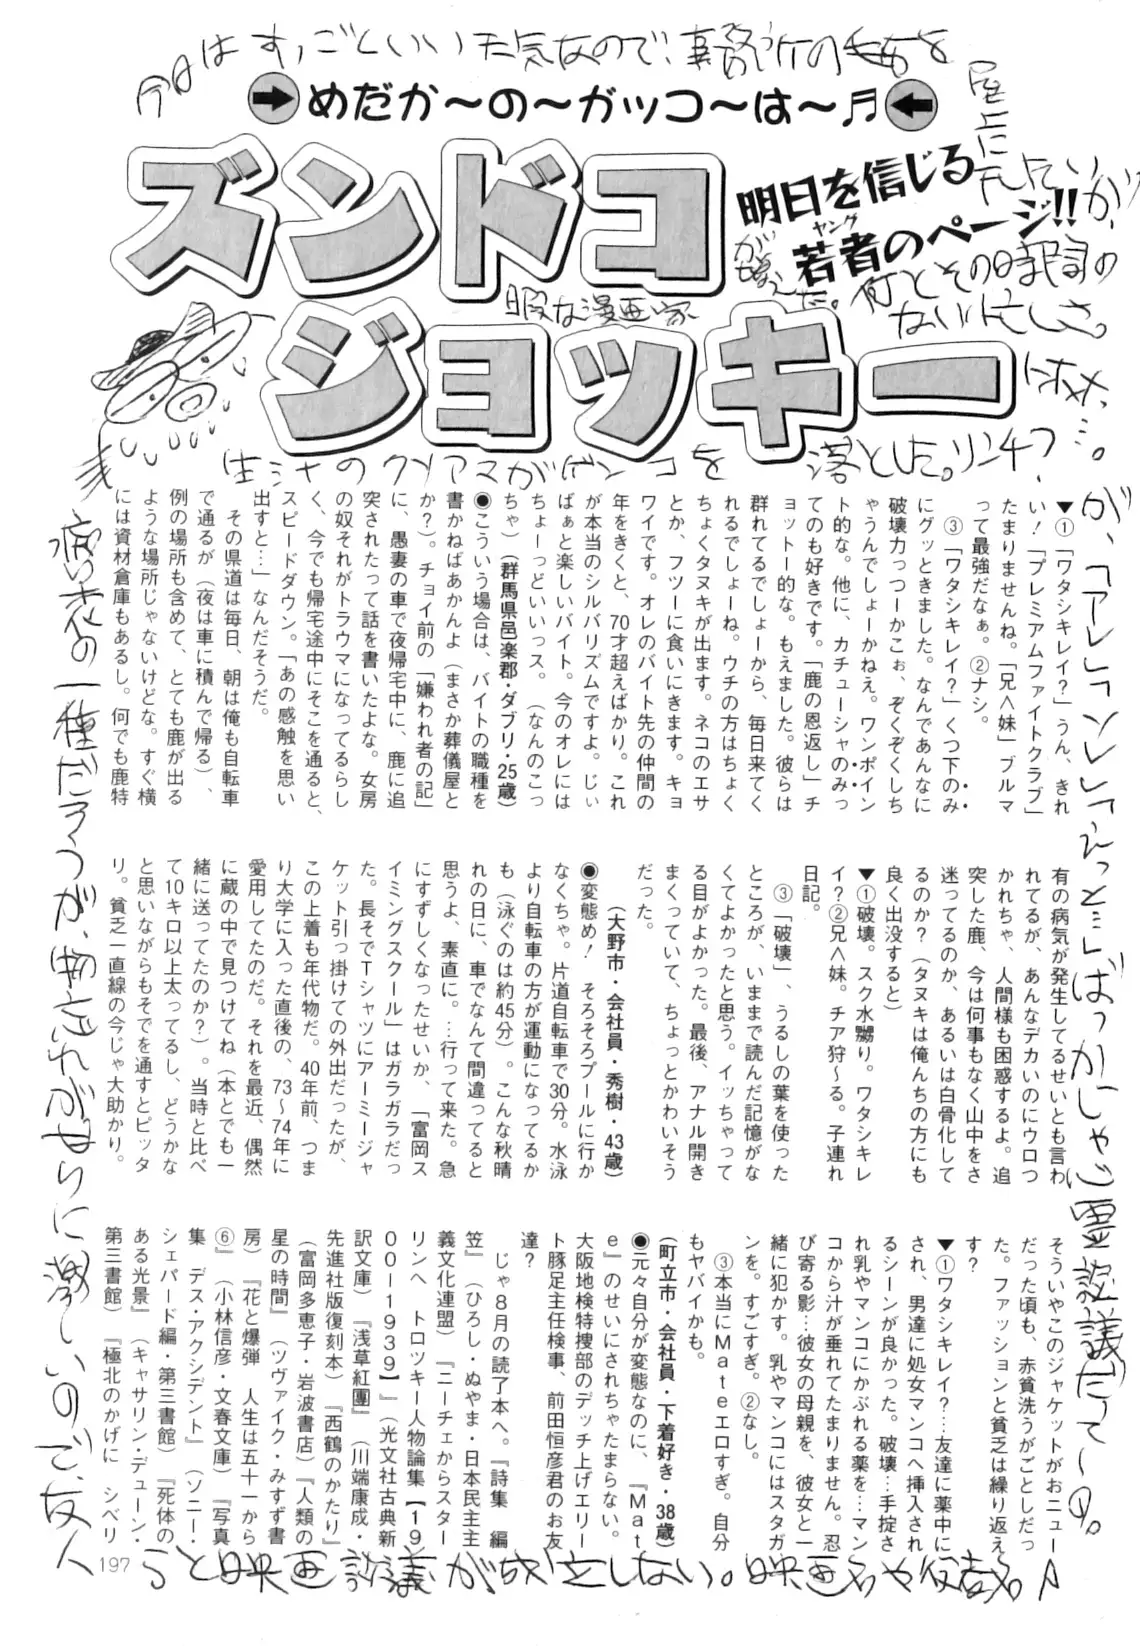 めだか〜の〜ガッコ〜は〜♬
ズンドコ
ジョッキー
明日を信じる
若者のページ!!
ヤング
今日はすっごといい天気なので、事務所の
屋上に
暇な漫画家
落とした。リンチ
▼①「ワタシキレイ?」うん、きれ
い!「プレミアムファイトクラブ」
たまりませんね。「兄∧妹」ブルマ
って最強だなぁ。②ナシ。
③「ワタシキレイ?」くつ下のみ
にグッときました。なんであんなに
破壊力っつーかこぉ、ぞくぞくしち
ゃうんでしょーかねえ。ワンポイン
ト的な。他に、カチューシャのみっ
てのも好きです。「鹿の恩返し」チ
ョット―的な。もえました。彼らは
群れてるでしょーから、毎日来てく
れるでしょーね。ウチの方はちょく
ちょくタヌキが出ます。ネコのエサ
とか、フツーに食いにきます。キョ
ワイです。オレのバイト先の仲間の
年をきくと、70才超えばかり。これ
が本当のシルバリズムですよ。じぃ
ばぁと楽しいバイト。今のオレには
ちょーっどいいっス。(なんのこっ
ちゃ)(群馬県邑楽郡・ダブリ・25歳)
●こういう場合は、バイトの職種を
書かねばあかんよ(まさか葬儀屋と
か?)。チョイ前の「嫌われ者の記」
に、愚妻の車で夜帰宅中に、鹿に追
突されたって話を書いたよな。女房
の奴それがトラウマになってるらし
く、今でも帰宅途中にそこを通ると、
スピードダウン。「あの感触を思い
出すと…」なんだそうだ。
その県道は毎日、朝は俺も自転車
で通るが(夜は車に積んで帰る)、
例の場所も含めて、とても鹿が出る
ような場所じゃないけどな。すぐ横
には資材倉庫もあるし。何でも鹿特
有の病気が発生してるせいとも言わ
れてるが、あんなデカいのにウロつ
かれちゃ、人間様も困惑するよ。追
突した鹿、今は何事もなく山中をさ
迷ってるのか、あるいは白骨化して
るのか?(タヌキは俺んちの方にも
良く出没すると)
▼①破壊。スク水嬲り。ワタシキレ
イ?②兄∧妹。チア狩〜る。子連れ
日記。
③「破壊」、うるしの葉を使った
ところが、いままで読んだ記憶がな
くてよかったと思う。イッちゃって
る目がよかった。最後、アナル開き
まくっていて、ちょっとかわいそう
だった。
(大野市・会社員・秀樹・43歳)
●変態め! そろそろプールに行か
なくちゃ。片道自転車で30分。水泳
より自転車の方が運動になってるか
も(泳ぐのは約45分)。こんな秋晴
れの日に、車でなんて間違ってると
思うよ、素直に。…行って来た。急
にすずしくなったせいか、「富岡ス
イミングスクール」はガラガラだっ
た。長そでTシャツにアーミージャ
ケット引っ掛けての外出だったが、
この上着も年代物だ。40年前、つま
り大学に入った直後の、73〜74年に
愛用してたのだ。それを最近、偶然
に蔵の中で見つけてね(本とでも一
緒に送ってたのか?)。当時と比べ
て10キロ以上太ってるし、どうかな
と思いながらもそでを通すとピッタ
リ。貧乏一直線の今じゃ大助かり。
そういやこのジャケットがおニュー
だった頃も、赤貧洗うがごとしだっ
た。ファッションと貧乏は繰り返え
す?
▼①ワタシキレイ?…友達に薬中に
され、男達に処女マンコへ挿入され
るシーンが良かった。破壊…手掟さ
れ乳やマンコにかぶれる薬を…マン
コから汁が垂れてたまりません。忍
び寄る影…彼女の母親を、彼女と一
緒に犯かす。乳やマンコにはスタガ
ンを。すごすぎ。②なし。
③本当にMateエロすぎ。自分
もヤバイかも。
(町立市・会社員・下着好き・38歳)
●元々自分が変態なのに、『Mat
e』のせいにされちゃたまらない。
大阪地検特捜部のデッチ上げエリー
ト豚足主任検事、前田恒彦君のお友
達?
じゃ8月の読了本へ。『詩集 編
笠』(ひろし・ぬやま・日本民主主
義文化連盟)『ニーチェからスター
リンへ トロツキー人物論集【19
00―1939】』(光文社古典新
訳文庫)『浅草紅團』(川端康成・
先進社版復刻本)『西鶴のかたり』
(富岡多恵子・岩波書店)『人類の
星の時間』(ツヴァイク・みすず書
房)『花と爆弾 人生は五十一から
⑥』(小林信彦・文春文庫)『写真
集 デス・アクシデント』(ソニー・
シェパード編・第三書館)『死体の
ある光景』(キャサリン・デューン・
第三書館)『極北のかげに シベリ
ばっかしゃ心霊談議だてーの。
らと映画談議が成立しない。映画名や役者名
病気の一種だろうが、物忘れがやけに激しいのご友人
197